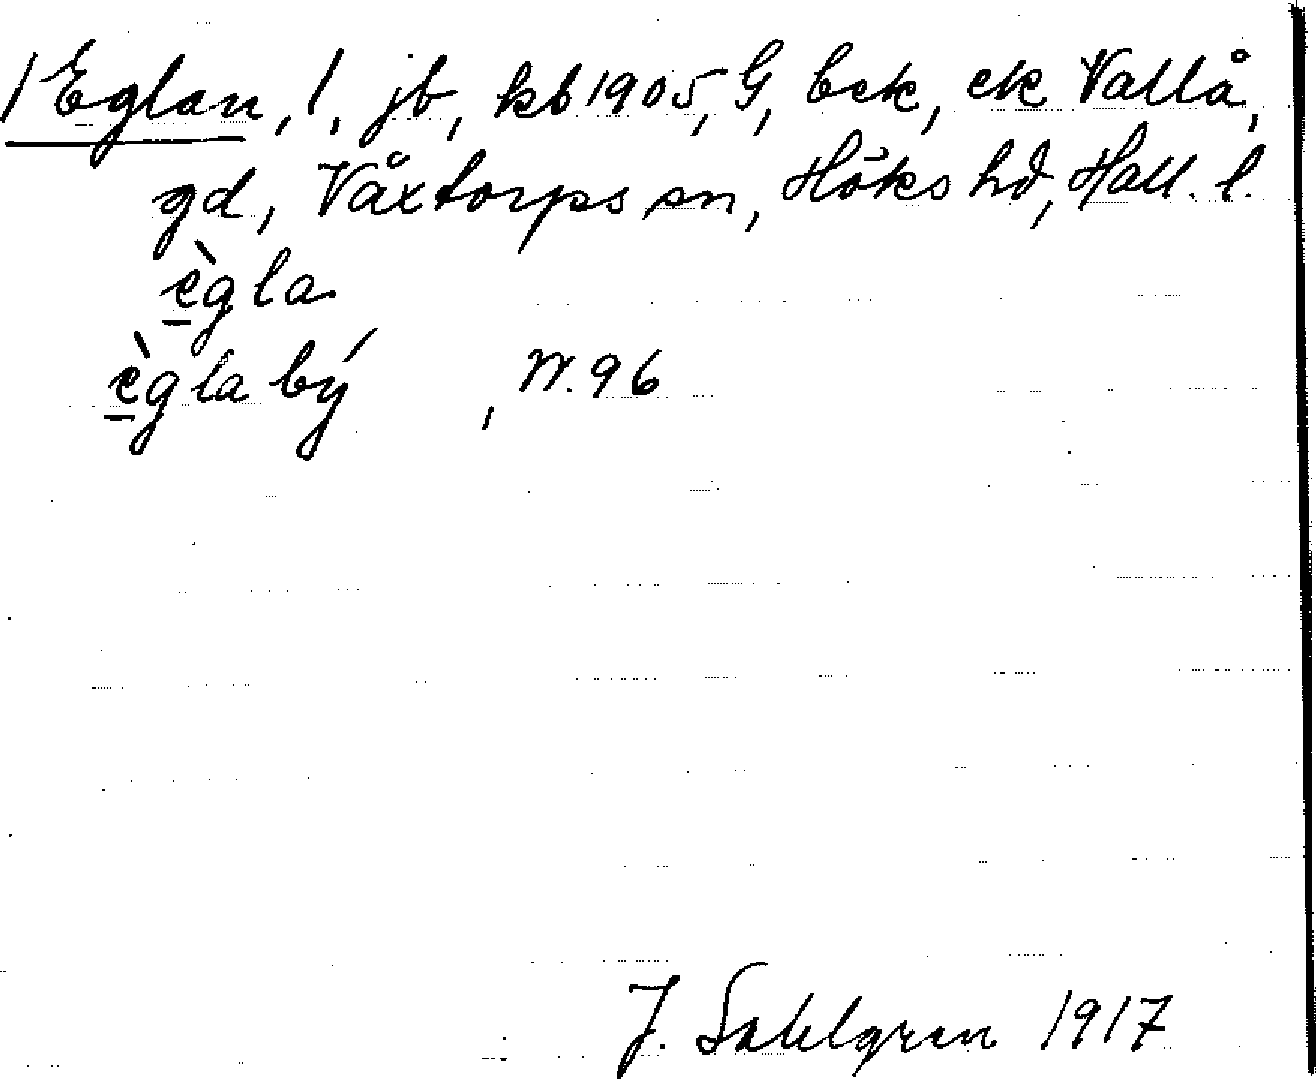 /Eglan, l, jb, kb 1905, G, bek, ek Vallå,
gd, Våxtorps sn, Höks hd, Hall. l.
è̱gla
è̱gla bý , W. 96
J. Sahlgren 1917